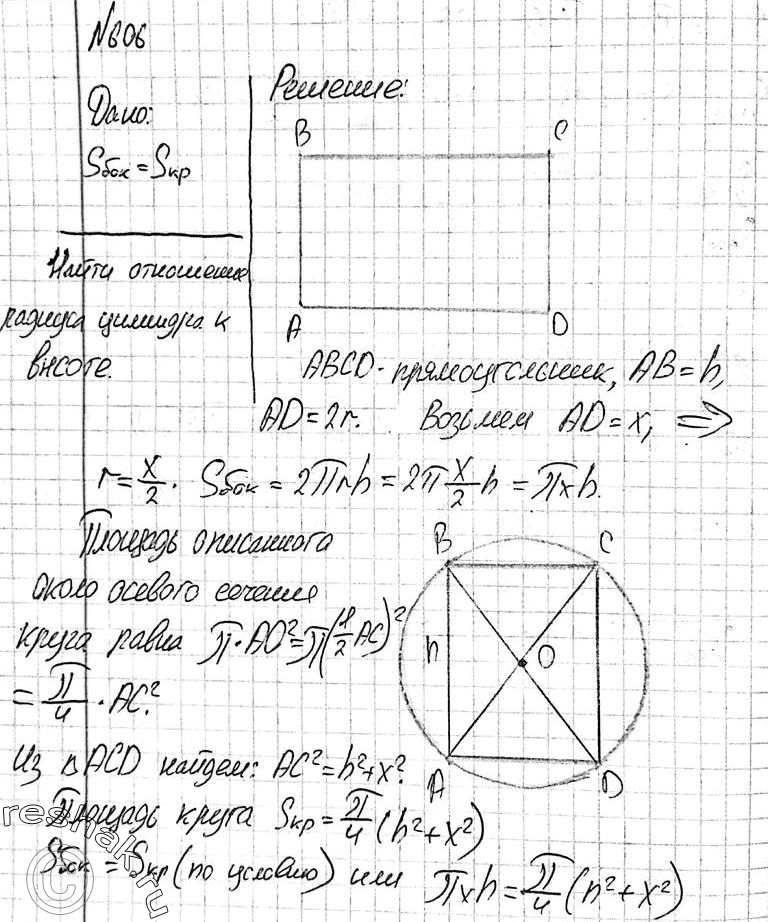 N606
Дано:
Sбок = Sкр
Найти отношение
радиуса цилиндра к
высоте.
Решение:
B C
A D
ABCD - прямоугольник, AB = h,
AD = 2r. Возьмем AD = x, ⇒
r = x/2. Sбок = 2πrh = 2π x/2 h = πxh.
Площадь описанного
около осевого сечения
круга равна π·AO² = π(1/2 AC)²
= π/4 · AC².
B C
h O
A D
Из △ACD найдем: AC² = h² + x².
Площадь круга Sкр = π/4 (h² + x²)
Sбок = Sкр (по условию) или πxh = π/4 (h² + x²)
© reshak.ru